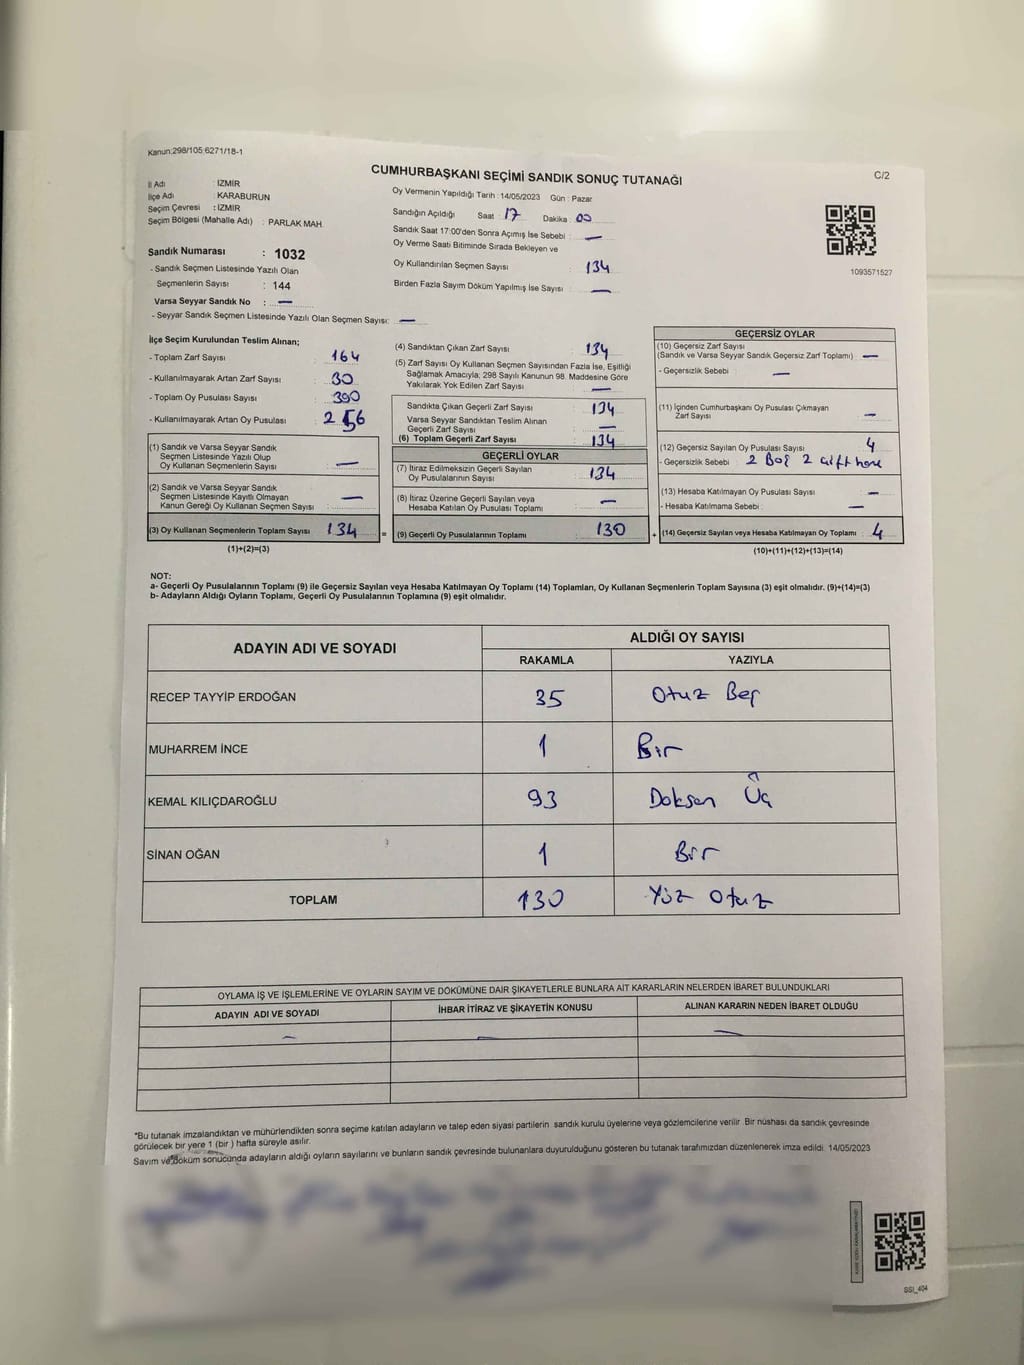 Kanun:298/105;6271/18-1
CUMHURBAŞKANI SEÇİMİ SANDIK SONUÇ TUTANAĞI
C/2
İl Adı : İZMİR
İlçe Adı : KARABURUN
Seçim Çevresi : İZMİR
Seçim Bölgesi (Mahalle Adı) : PARLAK MAH.
Oy Vermenin Yapıldığı Tarih : 14/05/2023 Gün : Pazar
Sandığın Açıldığı Saat : 17 Dakika : 00
Sandık Saat 17:00'den Sonra Açımış İse Sebebi : —
Oy Verme Saati Bitiminde Sırada Bekleyen ve
Oy Kullandırılan Seçmen Sayısı : 134
Birden Fazla Sayım Döküm Yapılmış İse Sayısı : —
1093571527
Sandık Numarası : 1032
- Sandık Seçmen Listesinde Yazılı Olan
Seçmenlerin Sayısı : 144
Varsa Seyyar Sandık No : —
- Seyyar Sandık Seçmen Listesinde Yazılı Olan Seçmen Sayısı: —
İlçe Seçim Kurulundan Teslim Alınan;
- Toplam Zarf Sayısı : 164
- Kullanılmayarak Artan Zarf Sayısı : 30
- Toplam Oy Pusulası Sayısı : 390
- Kullanılmayarak Artan Oy Pusulası : 256
(1) Sandık ve Varsa Seyyar Sandık
Seçmen Listesinde Yazılı Olup
Oy Kullanan Seçmenlerin Sayısı : —
(2) Sandık ve Varsa Seyyar Sandık
Seçmen Listesinde Kayıtlı Olmayan
Kanun Gereği Oy Kullanan Seçmen Sayısı : —
(3) Oy Kullanan Seçmenlerin Toplam Sayısı : 134 =
(1)+(2)=(3)
(4) Sandıktan Çıkan Zarf Sayısı : 134
(5) Zarf Sayısı Oy Kullanan Seçmen Sayısından Fazla İse, Eşitliği
Sağlamak Amacıyla; 298 Sayılı Kanunun 98. Maddesine Göre
Yakılarak Yok Edilen Zarf Sayısı : —
Sandıkta Çıkan Geçerli Zarf Sayısı : 134
Varsa Seyyar Sandıktan Teslim Alınan
Geçerli Zarf Sayısı : —
(6) Toplam Geçerli Zarf Sayısı : 134
GEÇERLİ OYLAR
(7) İtiraz Edilmeksizin Geçerli Sayılan
Oy Pusulalarının Sayısı : 134
(8) İtiraz Üzerine Geçerli Sayılan veya
Hesaba Katılan Oy Pusulası Toplamı : —
(9) Geçerli Oy Pusulalarının Toplamı : 130 +
GEÇERSİZ OYLAR
(10) Geçersiz Zarf Sayısı
(Sandık ve Varsa Seyyar Sandık Geçersiz Zarf Toplamı) : —
- Geçersizlik Sebebi : —
(11) İçinden Cumhurbaşkanı Oy Pusulası Çıkmayan
Zarf Sayısı : —
(12) Geçersiz Sayılan Oy Pusulası Sayısı : 4
- Geçersizlik Sebebi : 2 Boş 2 çift
(13) Hesaba Katılmayan Oy Pusulası Sayısı : —
- Hesaba Katılmama Sebebi : —
(14) Geçersiz Sayılan veya Hesaba Katılmayan Oy Toplamı : 4
(10)+(11)+(12)+(13)=(14)
NOT:
a- Geçerli Oy Pusulalarının Toplamı (9) ile Geçersiz Sayılan veya Hesaba Katılmayan Oy Toplamı (14) Toplamları, Oy Kullanan Seçmenlerin Toplam Sayısına (3) eşit olmalıdır. (9)+(14)=(3)
b- Adayların Aldığı Oyların Toplamı, Geçerli Oy Pusulalarının Toplamına (9) eşit olmalıdır.
ADAYIN ADI VE SOYADI
ALDIĞI OY SAYISI
RAKAMLA YAZIYLA
RECEP TAYYİP ERDOĞAN 35 Otuz Beş
MUHARREM İNCE 1 Bir
KEMAL KILIÇDAROĞLU 93 Doksan Üç
SİNAN OĞAN 1 Bir
TOPLAM 130 Yüz Otuz
OYLAMA İŞ VE İŞLEMLERİNE VE OYLARIN SAYIM VE DÖKÜMÜNE DAİR ŞİKAYETLERLE BUNLARA AİT KARARLARIN NELERDEN İBARET BULUNDUKLARI
ADAYIN ADI VE SOYADI İHBAR İTİRAZ VE ŞİKAYETİN KONUSU ALINAN KARARIN NEDEN İBARET OLDUĞU
— — —
*Bu tutanak imzalandıktan ve mühürlendikten sonra seçime katılan adayların ve talep eden siyasi partilerin sandık kurulu üyelerine veya gözlemcilerine verilir. Bir nüshası da sandık çevresinde
görülecek bir yere 1 (bir ) hafta süreyle asılır.
Sayım ve döküm sonucunda adayların aldığı oyların sayılarını ve bunların sandık çevresinde bulunanlara duyurulduğunu gösteren bu tutanak tarafımızdan düzenlenerek imza edildi. 14/05/2023
SSI_404